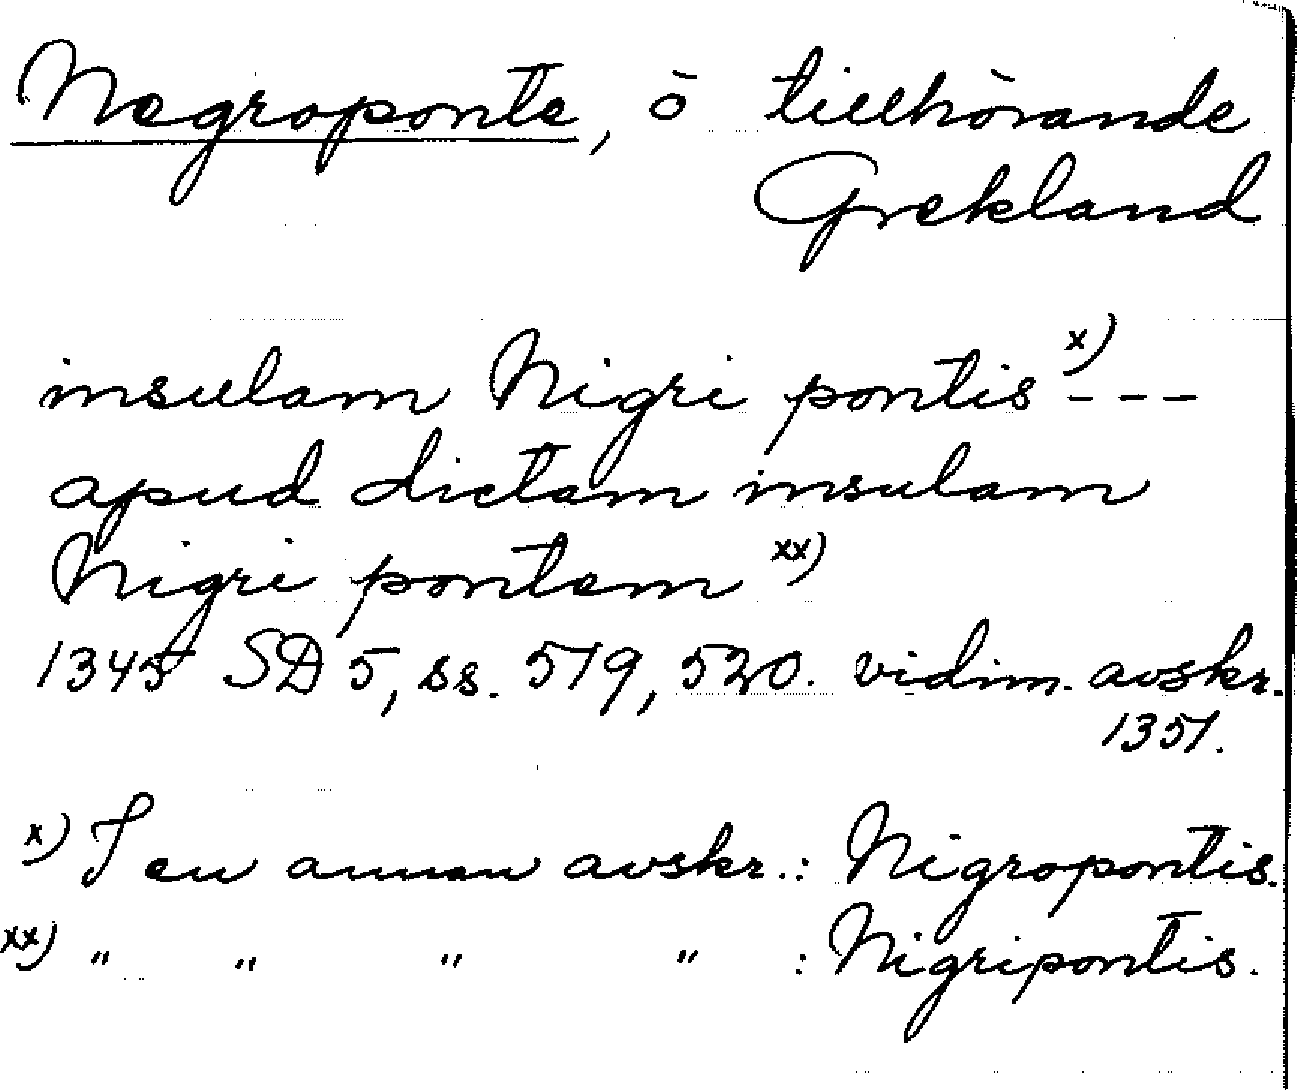 Negroponte, ö tillhörande
Grekland
insulam Nigri pontis x) ---
apud dictam insulam
Nigri pontem xx)
1345 SD 5, ss. 519, 520. vidim. avskr.
1351.
x) I en annan avskr.: Nigropontis.
xx) " " " " : Nigripontis.